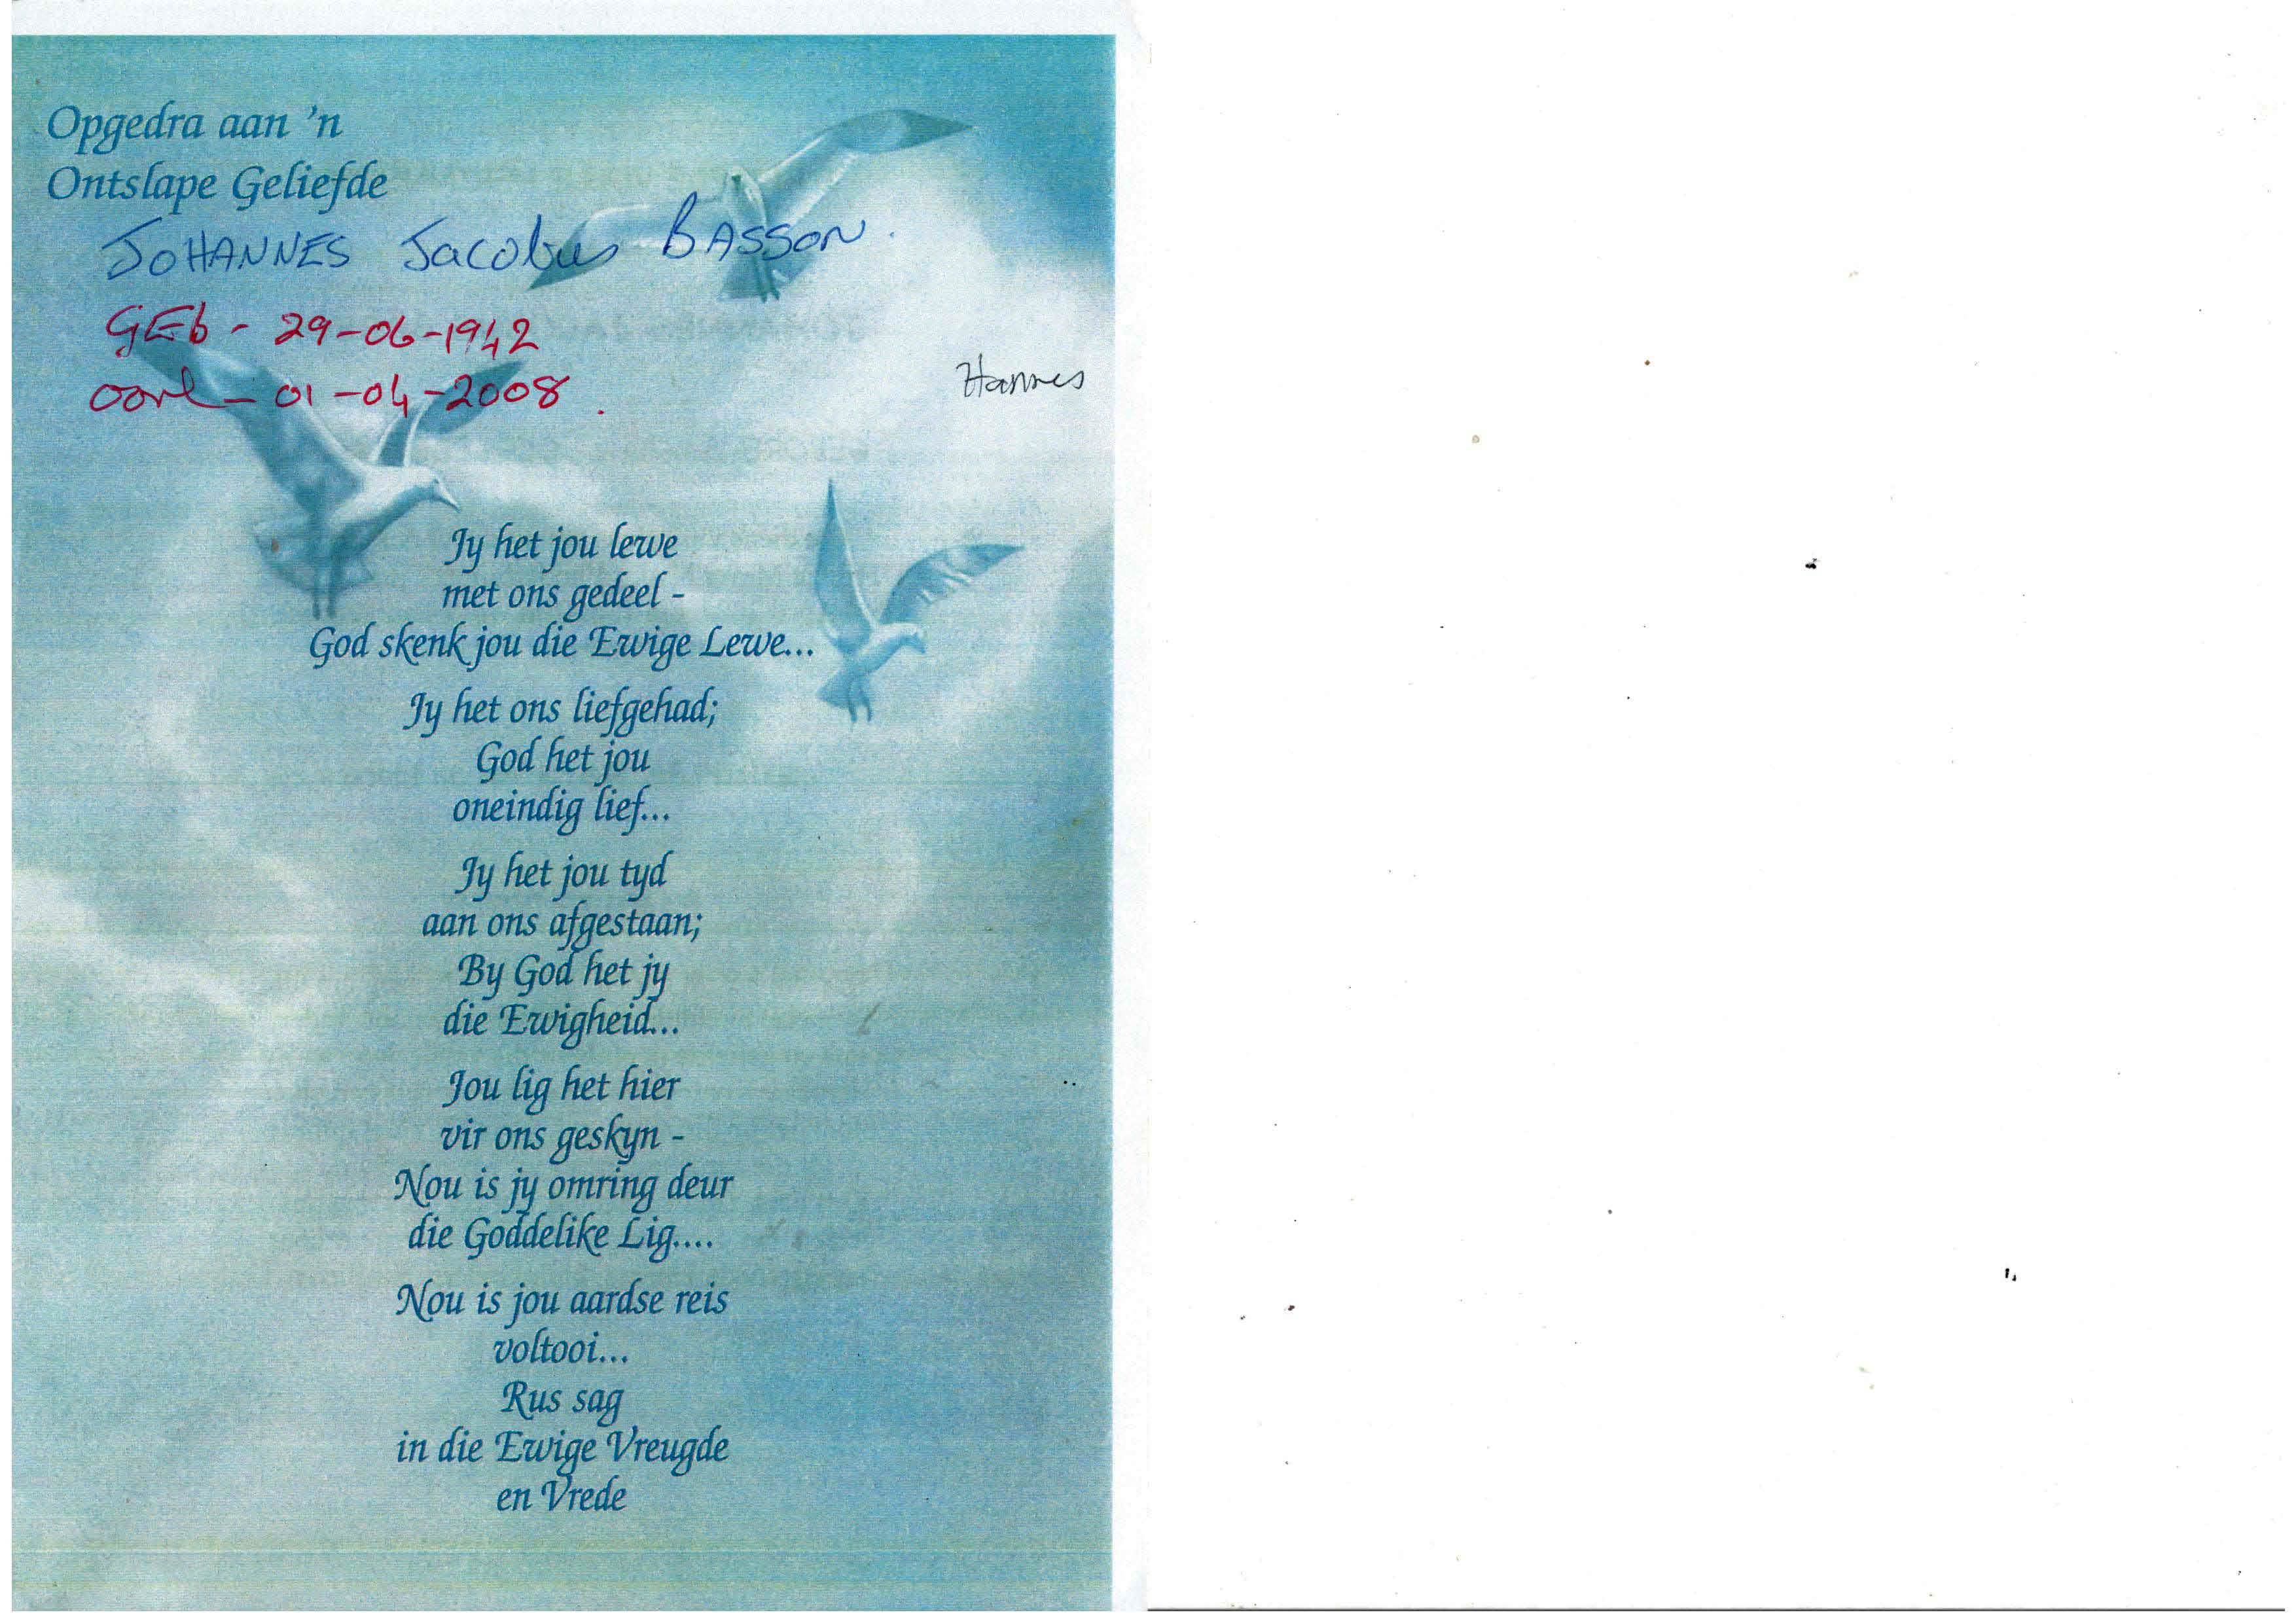 Opgedra aan 'n
Ontslape Geliefde
JOHANNES Jacobus BASSON.
GEb - 29-06-1942
oorl - 01-04-2008.
Hannes
Jy het jou lewe
met ons gedeel -
God skenk jou die Ewige Lewe...
Jy het ons liefgehad;
God het jou
oneindig lief...
Jy het jou tyd
aan ons afgestaan;
By God het jy
die Ewigheid...
Jou lig het hier
vir ons geskyn -
Nou is jy omring deur
die Goddelike Lig....
Nou is jou aardse reis
voltooi...
Rus sag
in die Ewige Vreugde
en Vrede